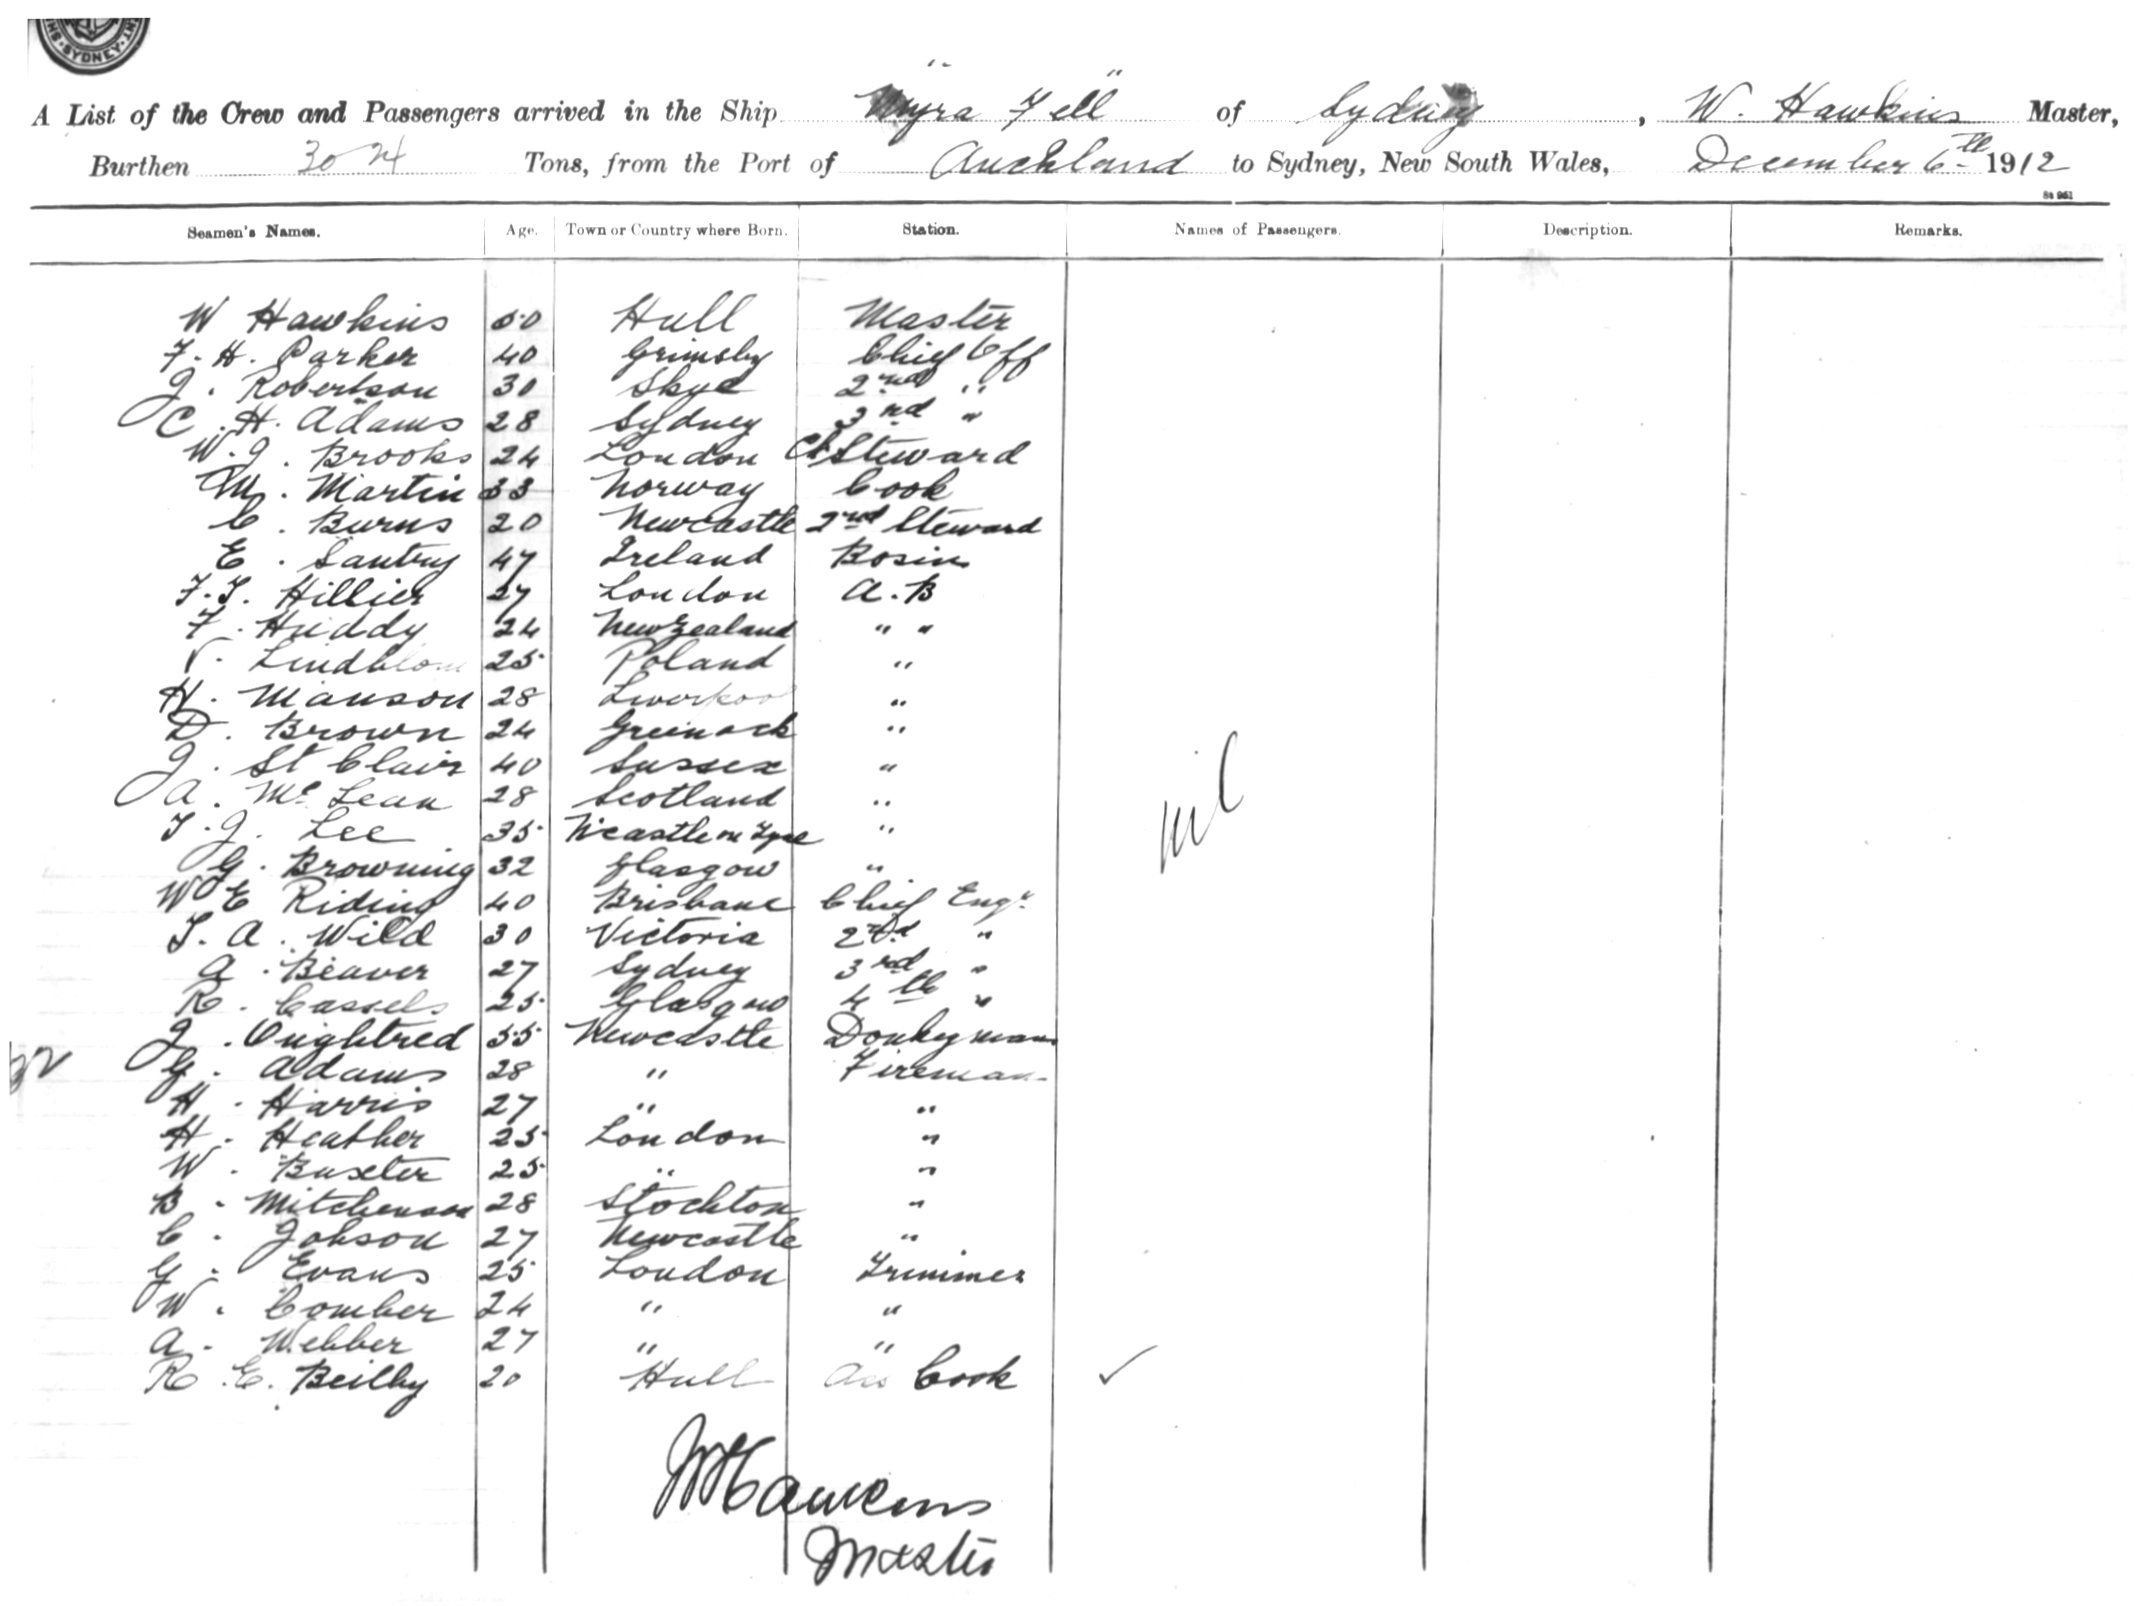 SYDNEY
A List of the Crew and Passengers arrived in the Ship Myra Fell of Sydney, W. Hawkins Master,
Burthen Tons, from the Port of Auckland to Sydney, New South Wales, December 6th 1912
Seamen's Names. Age. Town or Country where Born. Station. Names of Passengers. Description. Remarks.
W Hawkins 50 Hull Master
F. H. Parker 40 Grimsby Chief Off
J. Robertson 30 Skye 2nd "
C. H. Adams 28 Sydney 3rd "
W. J. Brooks 24 London Ch Steward
M. Martin 33 Norway Cook
C. Burns 20 Newcastle 2nd Steward
E. Santry 47 Ireland Bosin
F. T. Hillier 27 London A. B
F. Huddy 24 New Zealand " "
V. Lindblom 25 Poland "
H. Manson 28 Liverpool "
D. Brown 24 Greenock "
J. St Clair 40 Sussex "
A. McLean 28 Scotland "
T. J. Lee 35 N'castle on Tyne "
G. Browning 32 Glasgow "
W E Riding 40 Brisbane Chief Engr
T. A. Wild 30 Victoria 2nd "
A. Beaver 27 Sydney 3rd "
R. Cassels 25 Glasgow 4th "
J. Oughtred 55 Newcastle Donkeyman
G. Adams 28 " Fireman
H. Harris 27 " "
H. Heather 25 London "
W. Buxter 25 " "
B. Mitchenson 28 Stockton "
C. Johson 27 Newcastle "
G. Evans 25 London Trimmer
W. Comber 24 " "
A. Webber 27 " "
R. E. Beilby 20 Hull Ass Cook
nil
32
W Hawkins
Master